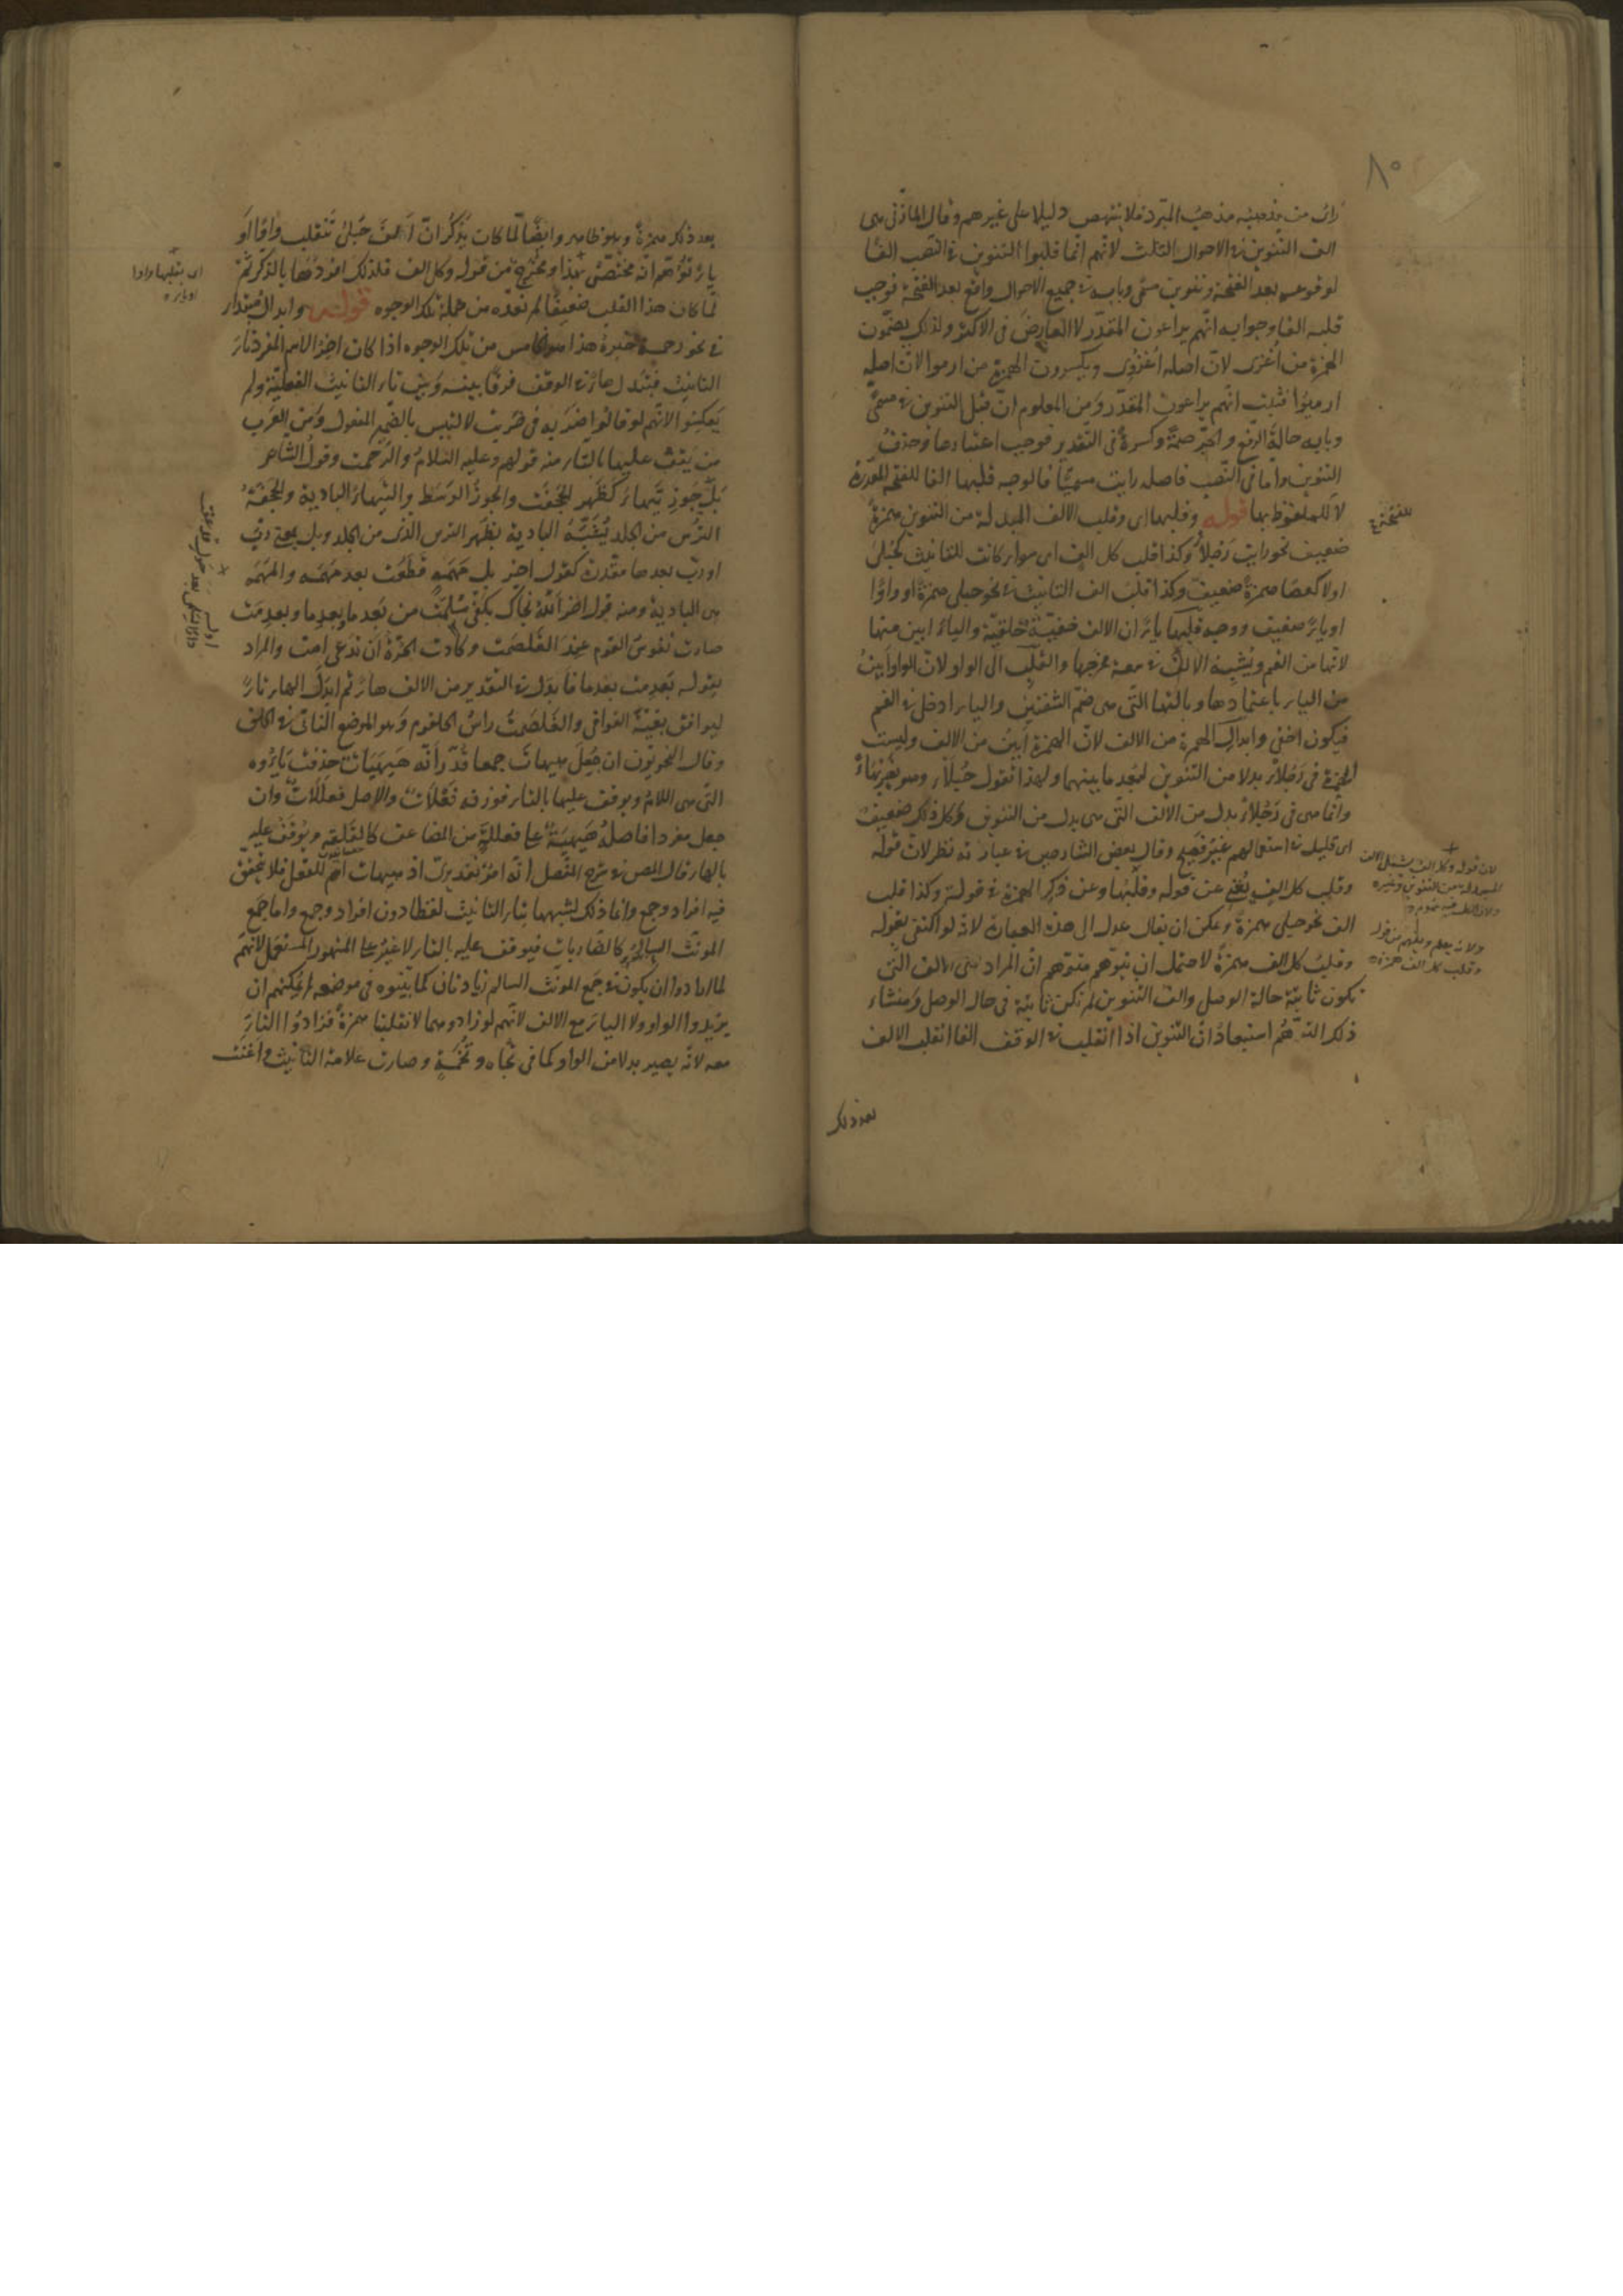 ٨٥
من مذهبه مذهب المبرد فلا ينتهض دليلا على غيرهم وقال المازنى هى
الف التنوين فى الاحوال الثلث لانهم انما قلبوا التنوين فى النصب الفا
لوقوعه بعد الفتحة وتنوين مسمى وبابه فى جميع الاحوال واقع بعد الفتحة فوجب
قلبه الفا وجوابه انهم يراعون المقدر لا العارض فى الاكثر ولذلك يضمون
الهمزة من اُغزى لان اصله اُغزوى ويكسرون الهمزة من ارموا لان اصله
ارميوا فثبت انهم يراعون المقدر ومن المعلوم ان قبل التنوين فى مسمى
وبابه حالة الرفع والجر ضمة وكسرة فى التقدير فوجب اعتبارها وحذف
التنوين واما فى النصب فاصله رايت مسميا فالوجه قلبها الفا للفتحة المقدرة
لا للملفوظ بها قوله وقلبها اى وقلب الالف المبدلة من التنوين همزة
ضعيف نحو رايت رجلأ وكذا قلب كل الف اى سواء كانت للتانيث كحبلى
او لا كعصا همزة ضعيف وكذا قلب الف التانيث فى نحو حبلى همزة او واوا
او ياء ضعيف ووجه قلبها ياء ان الالف خفية حلقية والياء ابين منها
لانها من الفم ويشبه الالف فى سعة مخرجها والقلب الى الواو لان الواو ابين
من الياء باعتمادها وبالتها التى هى ضم الشفتين والياء ادخل فى الفم
فيكون اخفى وابدال الهمزة من الالف لان الهمزة ابين من الالف وليست
الهمزة فى رجلأ بدلا من التنوين لبعد ما بينهما ولهذا تقول حبلأ وهو يضربهأ
وانما هى فى رجلأ بدل من الالف التى هى بدل من التنوين وكل ذلك ضعيف
اى قليل فى استعمالهم غير فصيح وقال بعض الشارحين فى عبارته نظر لان قوله
وقلب كل الف يغنى عن قوله وقلبها وعن ذكر الهمزة فى قوله وكذا قلب
الف نحو حبلى همزة ويمكن ان يقال عدل الى هذه العبارة لانه لو اكتفى بقوله
وقلب كل الف همزة لاحتمل ان يتوهم متوهم ان المراد هى الالف التى
تكون ثابتة حالة الوصل والف التنوين لم تكن ثابتة فى حال الوصل ومنشاء
ذلك التوهم استبعاد ان التنوين اذا انقلب فى الوقف الفا انقلب الالف
بعد ذلك
للفتحة
لان قوله وكل الف يشمل الالف
المبدلة من التنوين وغيره
وقلب كل الف همزة
بعد ذلك همزة وهو ظاهر وايضا لما كان يذكر ان الف حبلى تنقلب واوا او
ياء توهم انه مختص بهذا ومخرج من قوله وكل الف فلذلك افردها بالذكر ثم
لما كان هذا القلب ضعيفا لم نعده من جملة تلك الوجوه قوله وابدال
فى نحو رحمة هذا هو الخامس من تلك الوجوه اذا كان اخر الاسم المفرد تاء
التانيث فتبدل هاء فى الوقف فرقا بينه وبين تاء التانيث الفعلية ولم
يعكسوا لانهم لو قالوا ضربه فى ضربت لالتبس بالضمير المفعول ومن العرب
من يقف عليها بالتاء منه قولهم وعليه السلام والرحمت وقول الشاعر
بل جوز تيهاء كظهر الحجفت والجوز الوسط والتيهاء البادية والحجفة
الترس من الجلد يشبه البادية بظهر الترس الذى من الجلد وبل بمعنى رب
او رب بعدها مقدرة كقول اخر بل مهمه قطعت بعد مهمه والمهمه
هى البادية ومنه قول اخر الله نجاك بكفى مسلمت من بعد ما وبعد ما وبعدمت
صارت نفوس القوم عند الغلصمت وكادت الحرة ان تدعى امت والمراد
بقوله بعدمت بعدما فابدل فى التقدير من الالف هاء ثم ابدل الهاء تاء
ليوافق بقية القوافى والغلصمة راس الحلقوم وهو الموضع الناتى فى الحلق
وقال النحويون ان جعل هيهات جمعا قدر انه هيهيات حذفت ياؤه
التى هى اللام ويوقف عليها بالتاء فوزنه فعلات والاصل فعللات وان
جعل مفردا فاصله هيهية على فعللة من المضاعف كالقلقة ويوقف عليه
بالهاء قال المص فى شرح المفصل انه امر تقديرى اذ هيهات اسم للفعل فلا يتحقق
فيه افراد وجمع وانما ذلك لشبهها بتاء التانيث لفظا دون افراد وجمع واما جمع
المونث السالم كالضاربات فيوقف عليه بالتاء لا غير على المشهور المستعمل لانهم
لما ارادوا ان يكون فى جمع المونث السالم زيادتان كما بينوه فى موضعه لم يمكنهم ان
يزيدوا الواو ولا الياء مع الالف لانهم لو زادوهما لانقلبتا همزة فزادوا التاء
معه لانه يصير بدلا من الواو كما فى تجاه وتخمة وصارت علامة التانيث واغنت
اى بقلبها واوا
او ياء